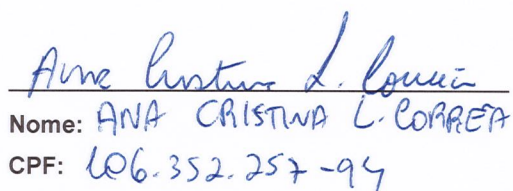 Ana Cristina L. Correia
Nome: ANA CRISTINA L. CORREIA
CPF: 106.352.257-94